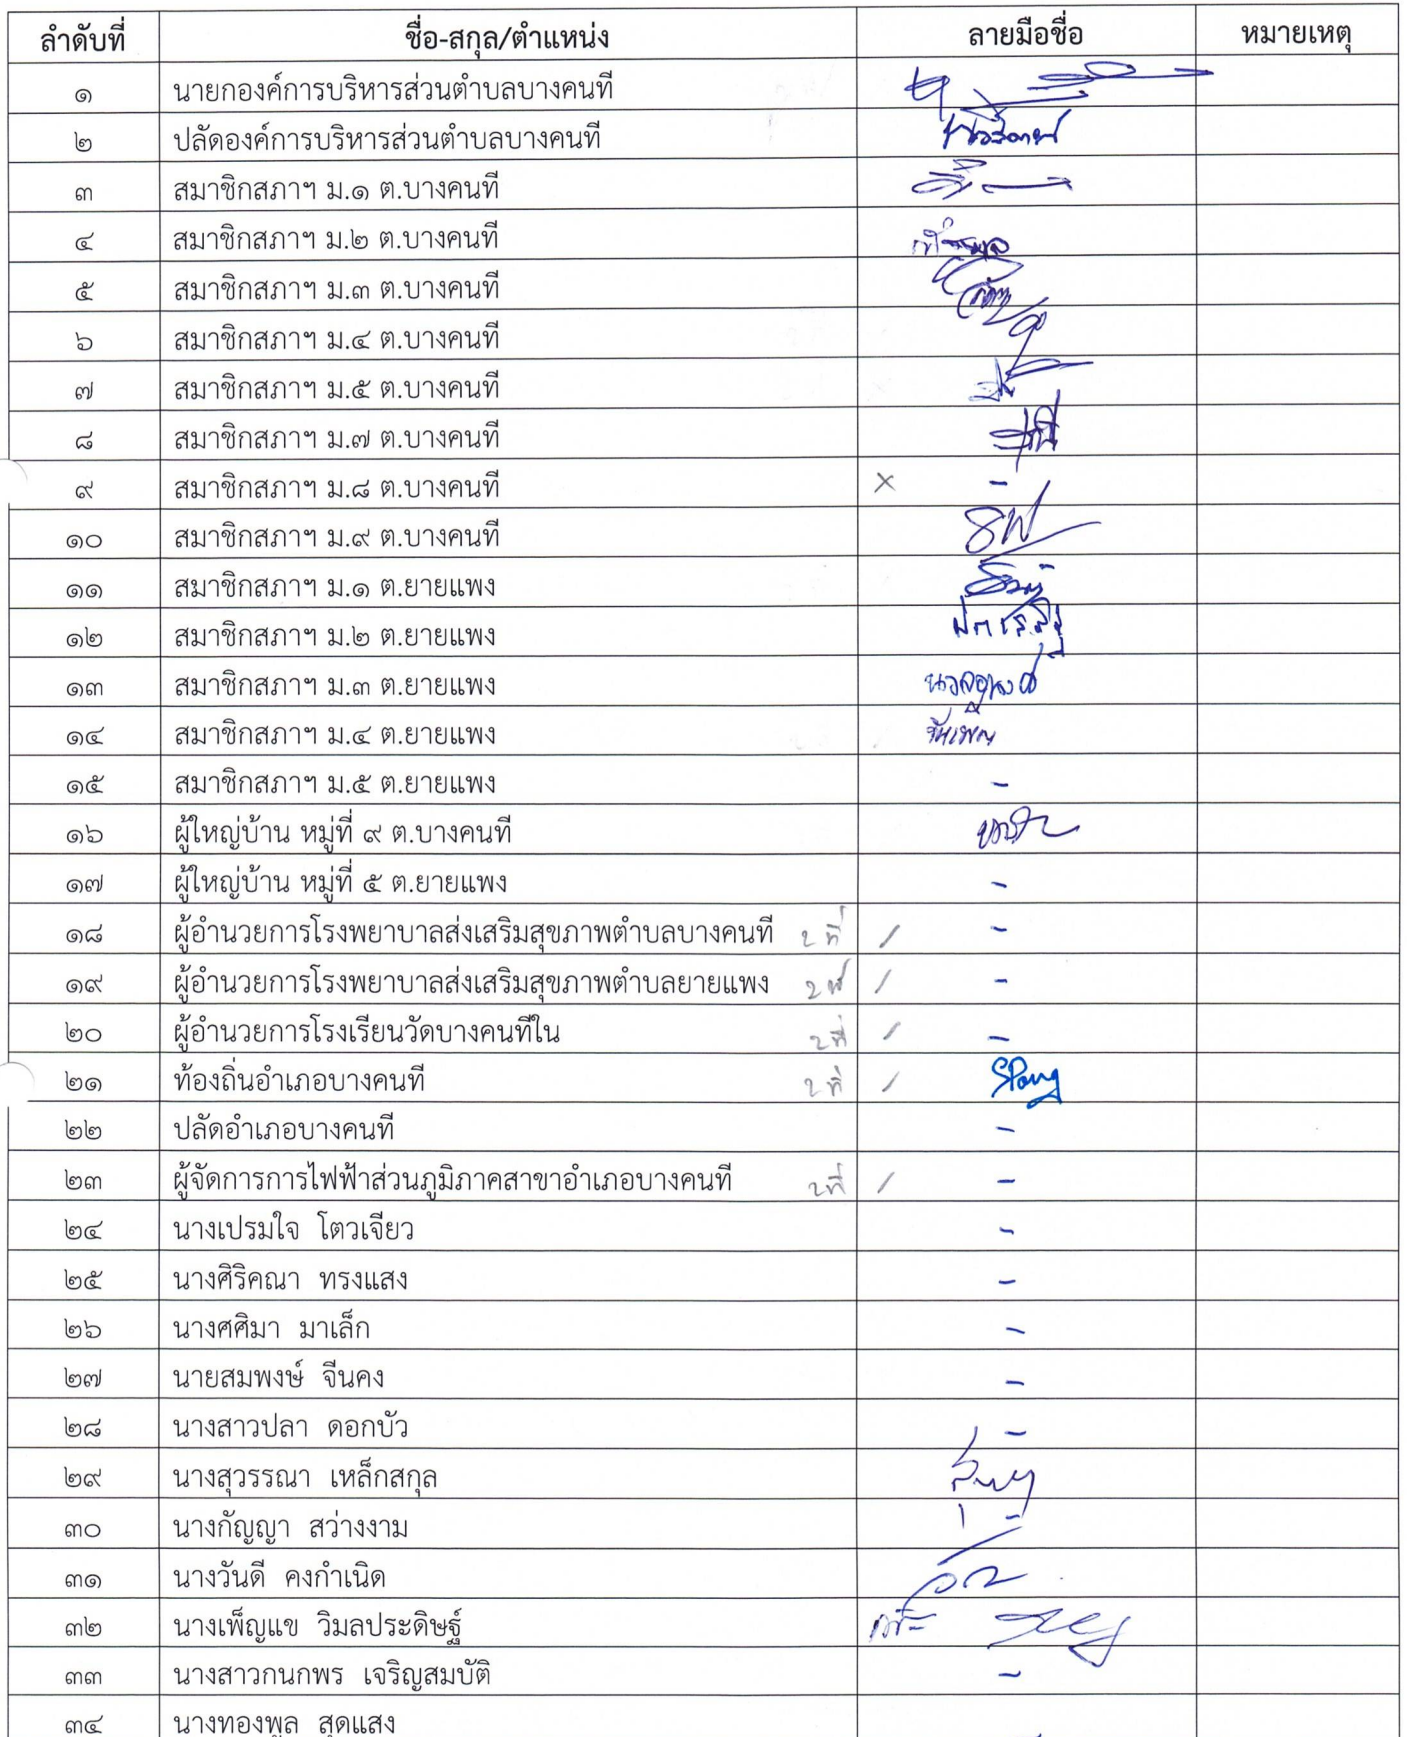 ลำดับที่ ชื่อ-สกุล/ตำแหน่ง ลายมือชื่อ หมายเหตุ
๑ นายกองค์การบริหารส่วนตำบลบางคนที
๒ ปลัดองค์การบริหารส่วนตำบลบางคนที
๓ สมาชิกสภาฯ ม.๑ ต.บางคนที
๔ สมาชิกสภาฯ ม.๒ ต.บางคนที
๕ สมาชิกสภาฯ ม.๓ ต.บางคนที
๖ สมาชิกสภาฯ ม.๔ ต.บางคนที
๗ สมาชิกสภาฯ ม.๕ ต.บางคนที
๘ สมาชิกสภาฯ ม.๗ ต.บางคนที
๙ สมาชิกสภาฯ ม.๘ ต.บางคนที × -
๑๐ สมาชิกสภาฯ ม.๙ ต.บางคนที
๑๑ สมาชิกสภาฯ ม.๑ ต.ยายแพง
๑๒ สมาชิกสภาฯ ม.๒ ต.ยายแพง
๑๓ สมาชิกสภาฯ ม.๓ ต.ยายแพง
๑๔ สมาชิกสภาฯ ม.๔ ต.ยายแพง
๑๕ สมาชิกสภาฯ ม.๕ ต.ยายแพง -
๑๖ ผู้ใหญ่บ้าน หมู่ที่ ๙ ต.บางคนที
๑๗ ผู้ใหญ่บ้าน หมู่ที่ ๕ ต.ยายแพง -
๑๘ ผู้อำนวยการโรงพยาบาลส่งเสริมสุขภาพตำบลบางคนที ๒ ที่ / -
๑๙ ผู้อำนวยการโรงพยาบาลส่งเสริมสุขภาพตำบลยายแพง ๒ ที่ / -
๒๐ ผู้อำนวยการโรงเรียนวัดบางคนทีใน ๒ ที่ / -
๒๑ ท้องถิ่นอำเภอบางคนที ๒ ที่ /
๒๒ ปลัดอำเภอบางคนที -
๒๓ ผู้จัดการการไฟฟ้าส่วนภูมิภาคสาขาอำเภอบางคนที ๒ ที่ / -
๒๔ นางเปรมใจ โตวเจียว -
๒๕ นางศิริคณา ทรงแสง -
๒๖ นางศศิมา มาเล็ก -
๒๗ นายสมพงษ์ จีนคง -
๒๘ นางสาวปลา ดอกบัว -
๒๙ นางสุวรรณา เหล็กสกุล
๓๐ นางกัญญา สว่างงาม -
๓๑ นางวันดี คงกำเนิด
๓๒ นางเพ็ญแข วิมลประดิษฐ์
๓๓ นางสาวกนกพร เจริญสมบัติ -
๓๔ นางทองพูล สุดแสง